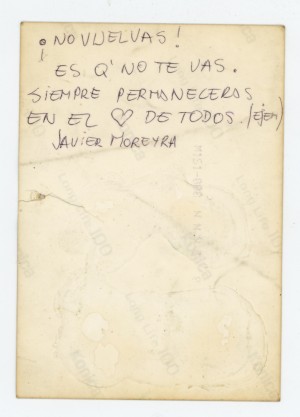 ¡NO VUELVAS!
ES Q' NO TE VAS.
SIEMPRE PERMANECERAS
EN EL ♡ DE TODOS. (EJEM)
JAVIER MOREYRA